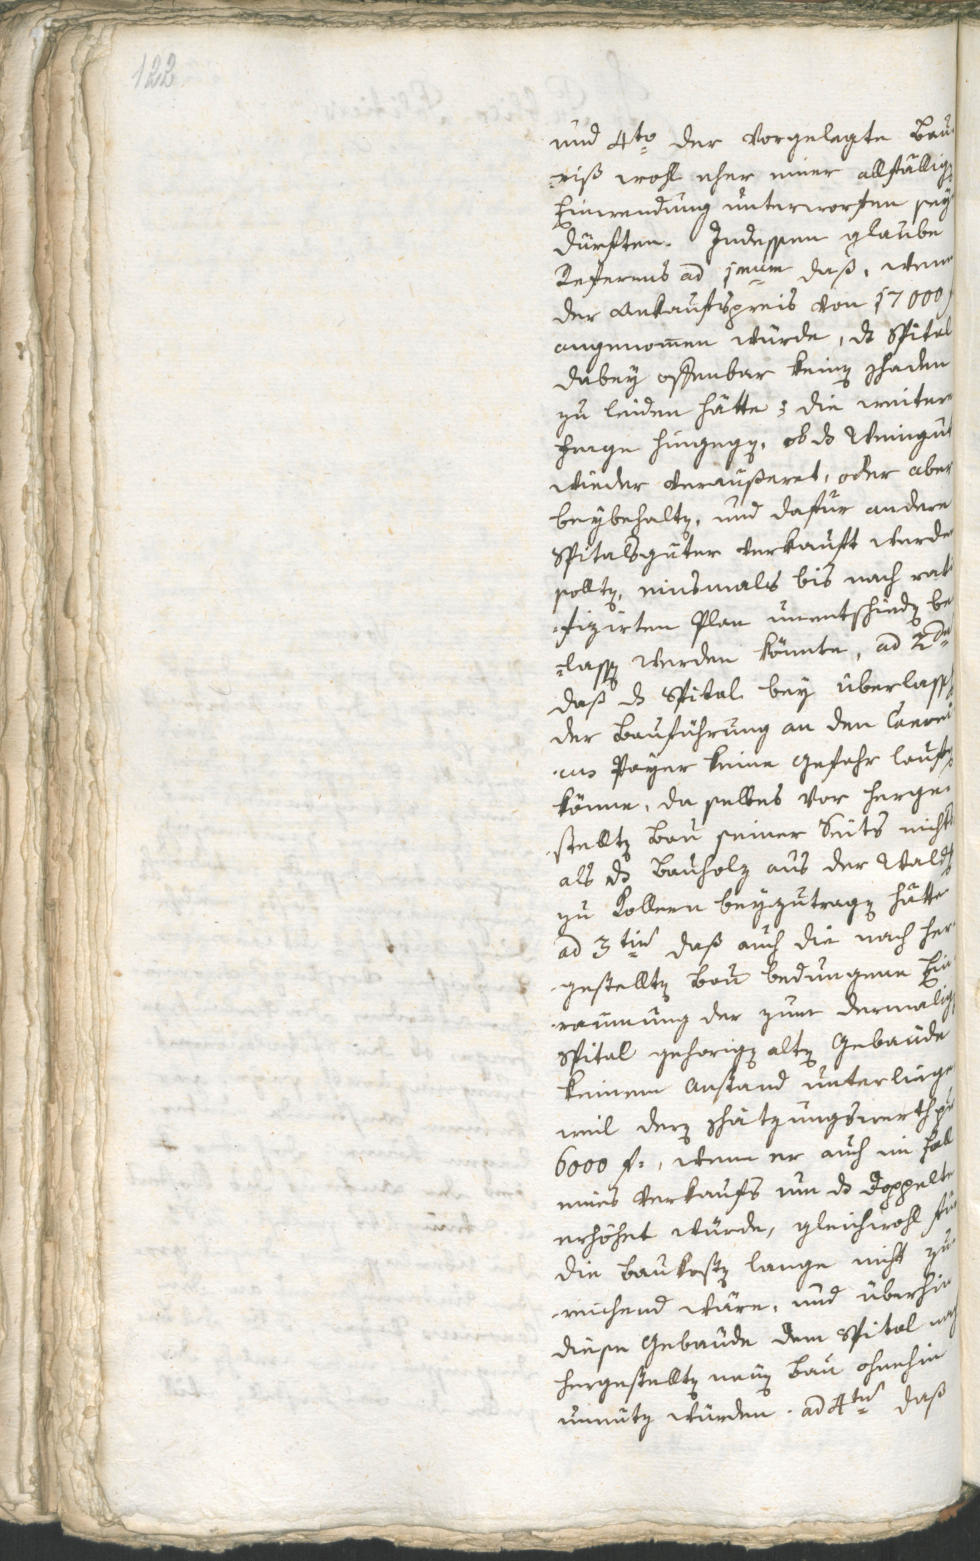 122
und 4to der vorgelegte Bau
-riß wohl eher einer allfällig
Einwendung unterworfen sey
dürften. Indessen glaube
Referens ad 1mum daß, wenn
der Ankaufspreis von 17000 f
angenommen würde, ds Spital
dabey offenbar kein schaden
zu leiden hätte; die weitere
frage hingeg, ob ds Weingut
wieder veraußeret, oder aber
beybehalt, und dafür andere
Spitalsgüter verkauft werde
sollt, einsmals bis nach rati
-fizirten Plan unentschied be
-lass werden könnte, ad 2do
daß ds Spital bey überlass
der Bauführung an den Canoni
-cus Payer keine Gefahr lauf
könne, da selbes vor herge-
-stellt Bau seiner Seits nicht
als ds Bauholz aus der Wald
zu Kollern beyzutrag hätte
ad 3tiu daß auch die nach her
-gestellt Bau bedungene Ein
-raumung der zum dermalig
Spital gehorig alt Gebäude
keinem Anstand unterliege
weil der schätzungswerth pr
6000 f., wenn er auch im Fall
eines Verkaufs um ds Doppelte
erhöhet würde, gleichwohl für
die Baukost lange nicht zu
-reichend wäre, und überhin
diese Gebäude dem Spital nach
hergestellt neu Bau ohnehin
unnütz würden. ad 4tu daß